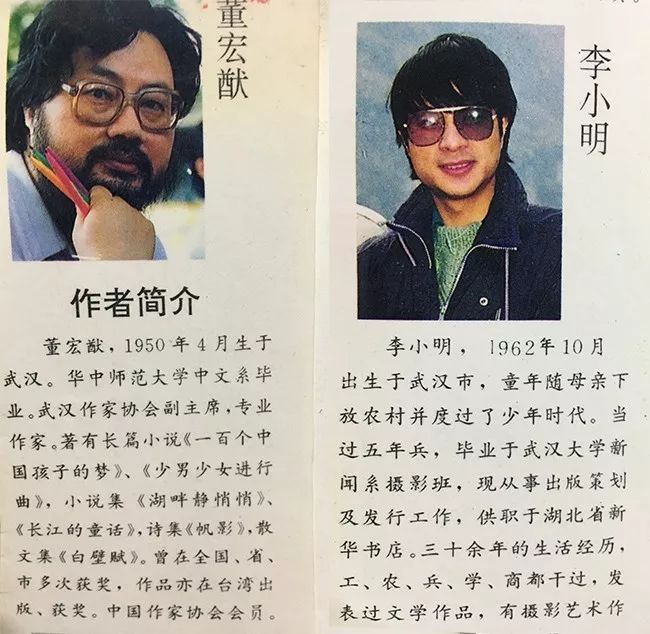 董宏猷
作者简介
董宏猷，1950年4月生于
武汉。华中师范大学中文系毕
业。武汉作家协会副主席，专业
作家。著有长篇小说《一百个中
国孩子的梦》、《少男少女进行
曲》，小说集《湖畔静悄悄》、
《长江的童话》，诗集《帆影》，散
文集《白壁赋》。曾在全国、省、
市多次获奖，作品亦在台湾出
版、获奖。中国作家协会会员。
李小明
李小明，1962年10月
出生于武汉市，童年随母亲下
放农村并度过了少年时代。当
过五年兵，毕业于武汉大学新
闻系摄影班，现从事出版策划
及发行工作，供职于湖北省新
华书店。三十余年的生活经历，
工、农、兵、学、商都干过，发
表过文学作品，有摄影艺术作